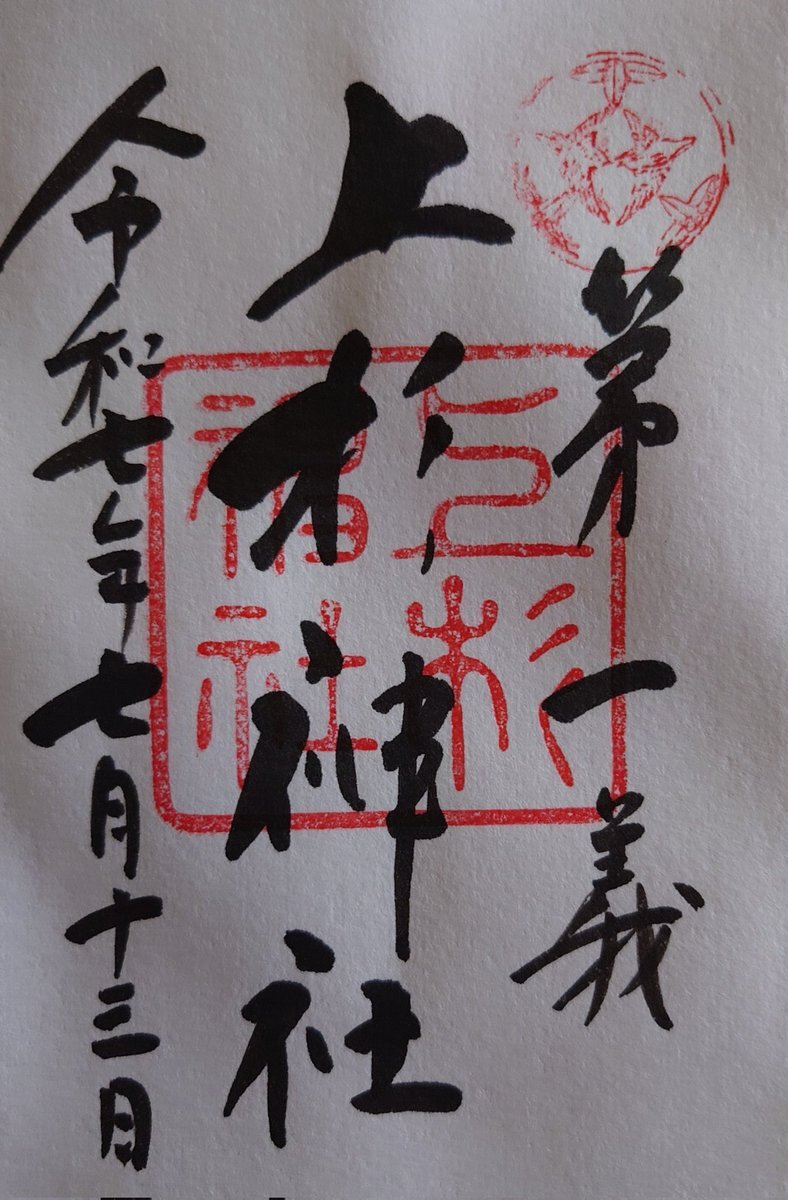 第一義
上杉神社
上杉神社
令和七年七月十三日